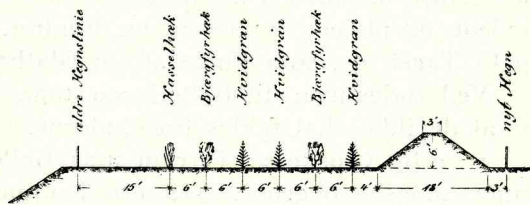 ældre Hegnslinie
Hasselhæk
Bjergfyrhæk
Hvidgran
Hvidgran
Bjergfyrhæk
Hvidgran
nyt Hegn
3'
6'
15'
6'
6'
6'
6'
6'
4'
18'
3'